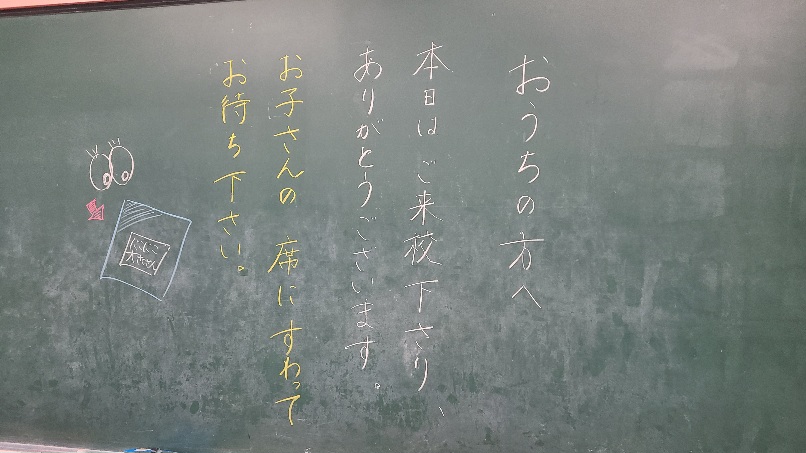 おうちの方へ
本日はご来校下さり、
ありがとうございます。
お子さんの 席に すわって
お待ち下さい。